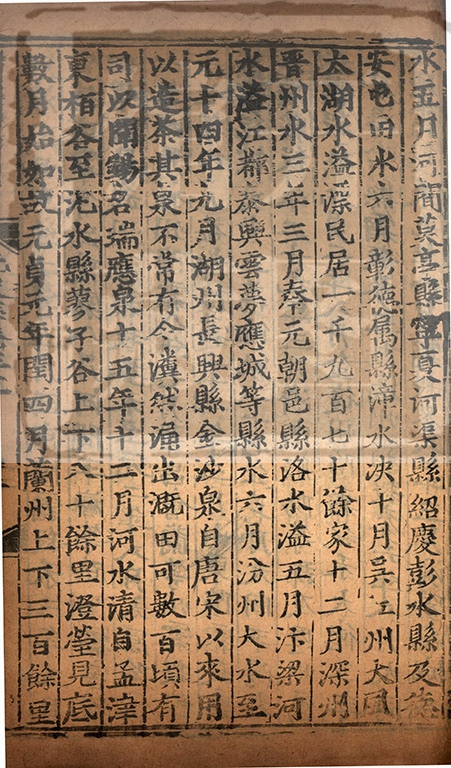 水五月河間莫亭縣寧夏河渠縣紹慶彭水縣及德
安屯田水六月彰德屬縣漳水決十月吳江州大風
太湖水溢漂民居一千九百七十餘家十二月深州
晋州水三年三月奉元朝邑縣洛水溢五月汴梁河
水溢江都泰興雲夢應城等縣水六月汾州大水至
元十四年九月湖州長興縣金沙泉自唐宋以來用
以造茶其泉不常有今瀵然涌出溉田可數百頃有
司以聞錫名瑞應泉十五年十二月河水清自孟津
東柏谷至汜水縣蓼子谷上下八十餘里澄瑩見底
數月始如故元貞元年閏四月蘭州上下三百餘里